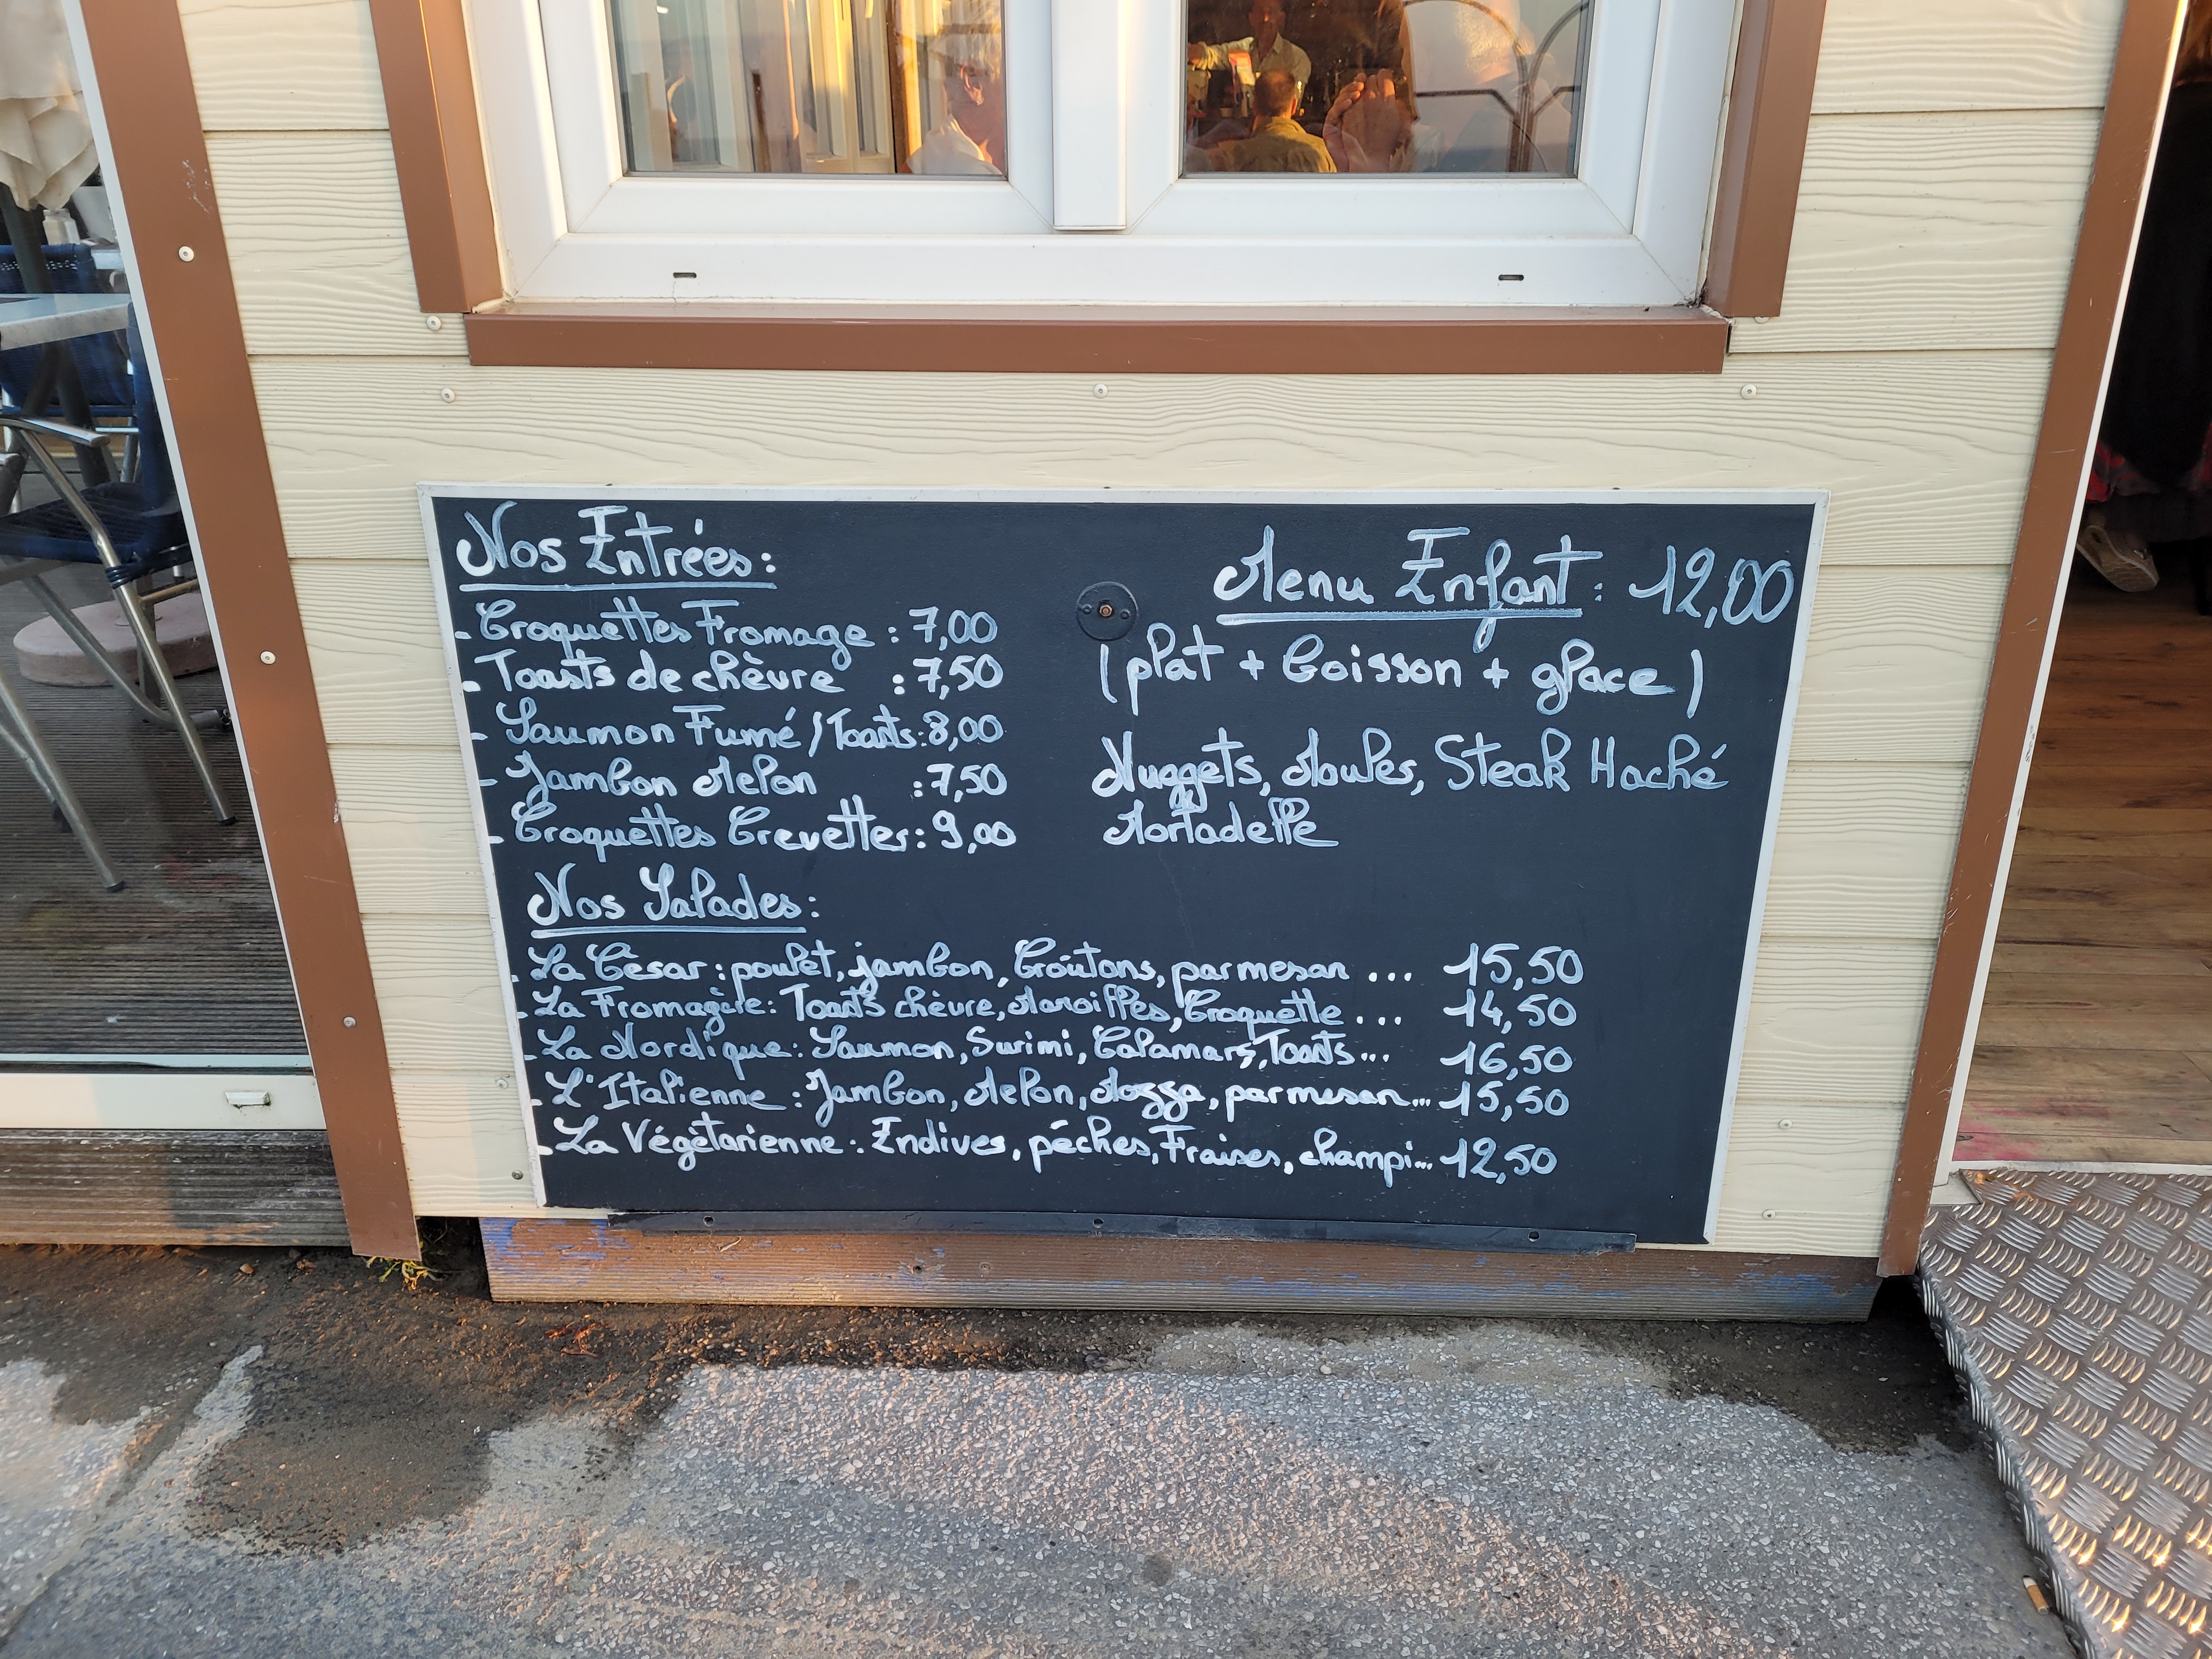 Nos Entrées:
- Croquettes Fromage : 7,00
- Toasts de chèvre : 7,50
- Saumon Fumé / Toasts : 8,00
- Jambon Melon : 7,50
- Croquettes Crevettes : 9,00
Menu Enfant : 12,00
(plat + boisson + glace)
Nuggets, Moules, Steak Haché
Mortadelle
Nos Salades:
- La César : poulet, jambon, Croûtons, parmesan ... 15,50
- La Fromagère : Toasts chèvre, Maroilles, Croquette ... 14,50
- La Nordique : Saumon, Surimi, Calamars, Toasts... 16,50
- L'Italienne : Jambon, Melon, Mozza, parmesan... 15,50
- La Végétarienne : Endives, pêches, Fraises, champi... 12,50